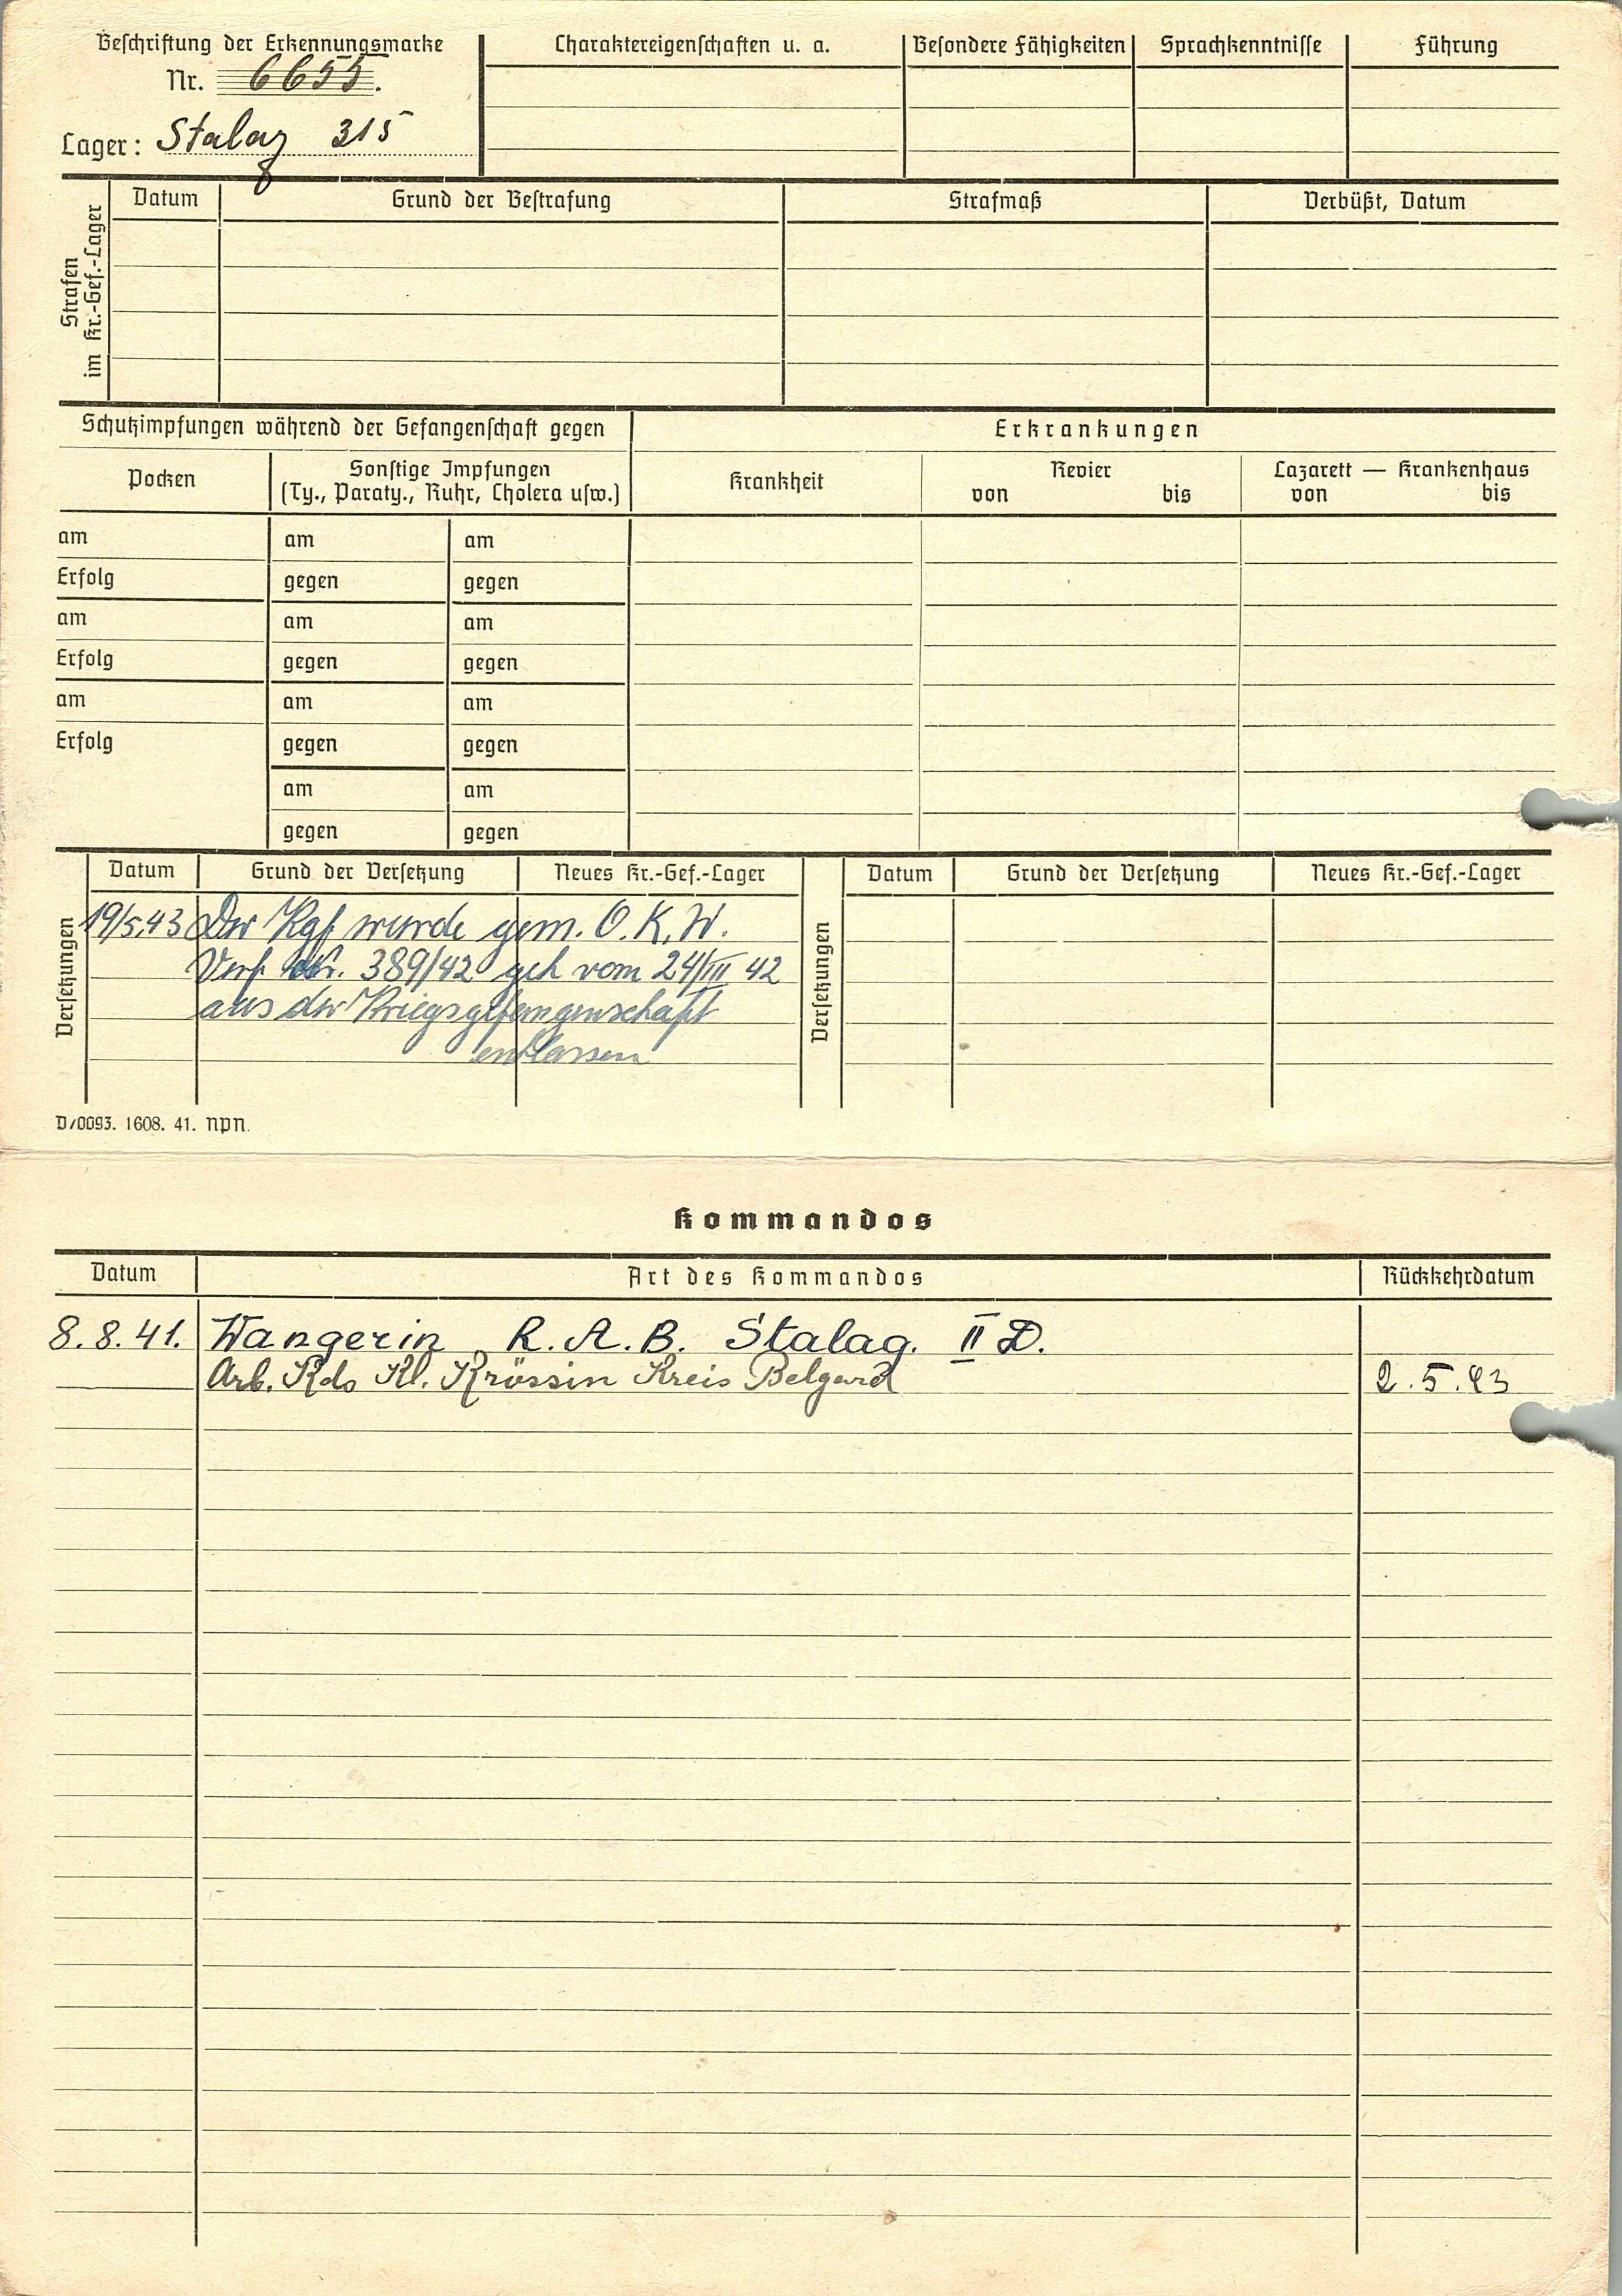 Beschriftung der Erkennungsmarke
Nr. 6655.
Lager: Stalag 315
Charaktereigenschaften u. a. Besondere Fähigkeiten Sprachkenntnisse Führung
Strafen
im Kr.-Gef.-Lager
Datum Grund der Bestrafung Strafmaß Verbüßt, Datum
Schutzimpfungen während der Gefangenschaft gegen Erkrankungen
Pocken Sonstige Impfungen
(Ty., Paraty., Ruhr, Cholera usw.) Krankheit Revier
von bis Lazarett — Krankenhaus
von bis
am am am
Erfolg gegen gegen
am am am
Erfolg gegen gegen
am am am
Erfolg gegen gegen
am am
gegen gegen
Versetzungen
Datum Grund der Versetzung Neues Kr.-Gef.-Lager
19/5.43 Der Kgf wurde gem. O.K.W.
Verf. Nr. 389/42 geh vom 24/III 42
aus der Kriegsgefangenschaft
entlassen
Versetzungen
Datum Grund der Versetzung Neues Kr.-Gef.-Lager
D/0093. 1608. 41. npn.
Kommandos
Datum Art des Kommandos Rückkehrdatum
8.8.41. Wangerin R.A.B. Stalag. II D.
Arb. Kdo Kl. Krössin Kreis Belgard 2.5.43